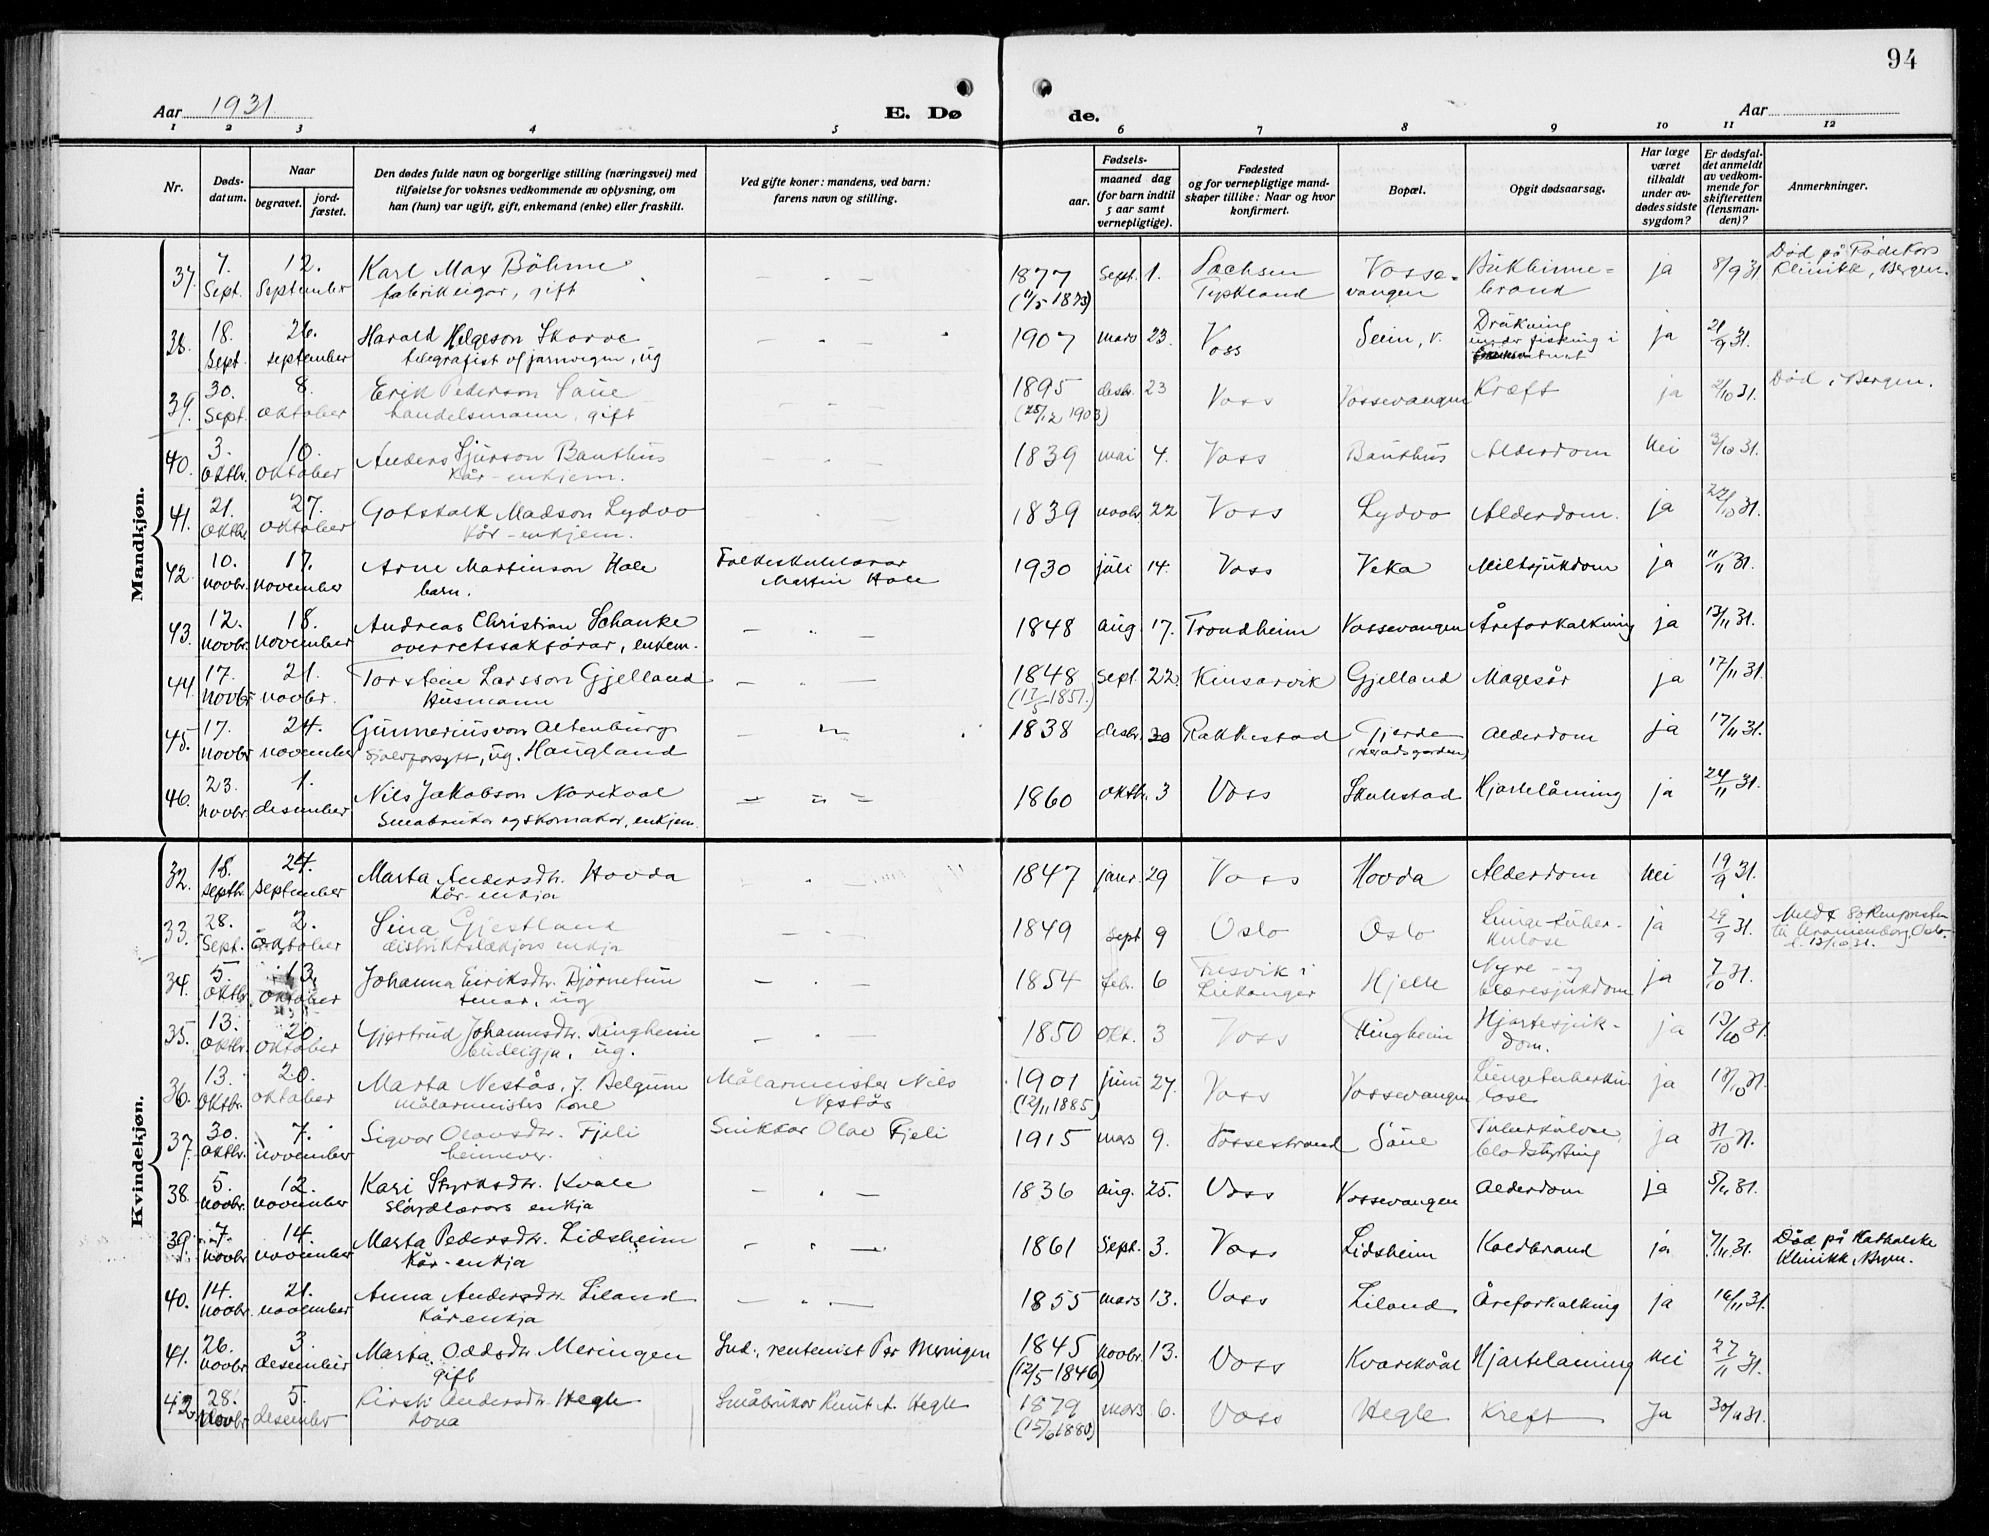 94
Aar 1931
E. Dø
de.
Aar
1 2 3 4 5 6 7 8 9 10 11 12
Nr.
Døds-
datum.
Naar
begravet.
jord-
fæstet.
Den dødes fulde navn og borgerlige stilling (næringsvei) med
tilføielse for voksnes vedkommende av oplysning, om
han (hun) var ugift, gift, enkemand (enke) eller fraskilt.
Ved gifte koner: mandens, ved barn:
farens navn og stilling.
Fødsels-
aar.
maaned dag
(for barn indtil
5 aar samt
vernepligtige).
Fødested
og for vernepligtige mand-
skaper tillike: Naar og hvor
konfirmert.
Bopæl.
Opgit dødsaarsag.
Har læge
været
tilkaldt
under av-
dødes sidste
sygdom?
Er dødsfal-
det anmeldt
av vedkom-
mende for
skifteretten
(lensman-
den)?
Anmerkninger.
Mandkjøn.
37. 7. Sept. 12. September Karl Max Böhme
fabrikeigar, gift
— " — 1877 (11/5 1873) Sept. 1. Sachsen Tyskland Vosse-vangen Bukhinne-brand ja 8/9 31 Død på Rødekors Klinikk, Bergen.
38. 18. Sept. 26. september Harald Helgeson Skorve
telegrafist v/ jarnvegen, ug
— " — 1907 mars 23. Voss Seim, v. Drukning under fisking i ja 21/9 31.
39. 30. Sept. 8. oktober Erik Pederson Saue
handelsmann, gift
— " — 1895 (25/12 1903) desbr. 23 Voss Vossevangen Kræft ja 2/10 31. Død i Bergen.
40. 3. Oktbr. 10. oktober Anders Sjurson Bauthus
Kår-enkjem.
— " — 1839 mai 4. Voss Bauthus Alderdom Nei 3/10 31.
41. 21. Oktbr. 27. oktober Gotskalk Madson Lydvo
Kår-enkjem.
— " — 1839 novbr. 22 Voss Lydvo Alderdom. ja 22/10 31.
42. 10. novbr. 17. november Arne Martinson Hole
barn.
Folkeskulelærar
Martin Hole
1930 juli 14. Voss Veka Miltsjukdom ja 11/11 31.
43. 12. novbr. 18. november Andreas Christian Schanke
overretssakførar, enkem.
— " — 1848 aug. 17. Trondheim Vossevangen Åreforkalkning ja 13/11 31.
44. 17. Novbr. 21. novbr. Torstein Larsson Gjelland
Husmann
— " — 1848 (17/5 1851.) Sept. 22. Kinsarvik Gjelland Magesår ja 17/11 31.
45. 17. novbr. 24. november Gunnerius von Altenburg
sjølvforsytt, ug. Haugland
— " — 1838 desbr. 30 Rakkestad Gjerde (Heradsgarden) Alderdom ja 17/11 31.
46. 23. novbr. 1. desember Nils Jakobson Norekval
Småbruker og skomaker, enkjem.
— " — 1860 oktbr. 3 Voss Skulestad Hjartelåming ja 24/11 31.
Kvindekjøn.
32. 18. septbr. 24. september Marta Andersdtr. Hovda
Kår-enkja
— " — 1847 janr. 29 Voss Hovda Alderdom Nei 19/9 31.
33. 28. Sept. 2. oktober Sina Gjestland
distriktslækjars enkja
— " — 1849 sept 9 Oslo Oslo Lungetuber-kulose ja 29/9 31. Meldt Soknepresten til Uranienborg, Oslo. 13/10 31.
34. 5. Oktbr. 13. oktober Johanna Eiriksdtr. Bjørnetun
tenar, ug
— " — 1854 feb. 6 Fresvik i Leikanger Hjelle Nyre- og blæresjukdom ja 7/10 31.
35. 13. Oktbr. 20. oktober Gjertrud Johannesdtr. Ringheim
budeigja, ug.
— " — 1850 Okt. 3 Voss Ringheim Hjartesjuk-dom. ja 13/10 31.
36. 13. Oktbr. 20. oktober Marta Nestås, f. Belgum
målarmeisters kone
Målarmeister Nils
Nestås
1901 (12/11 1885) juni 27. Voss Vossevangen Lungetuberku-lose ja 13/10 31.
37. 30. Oktbr. 7. november Sigvor Olavsdtr. Fjeli
heimever.
Snikkar Olav Fjeli
1915 mars 9. Vossestrand Saue Tuberkulose, blodstyrting ja 31/10 31.
38. 5. novbr. 12. november Kari Styrksdtr. Kvale
Sløydlærars enkja
— " — 1836 aug. 25. Voss Vossevangen Alderdom ja 5/11 31.
39. 7. Novbr. 14. november Marta Pedersdtr. Lidsheim
Kår-enkja
— " — 1861 Sept. 3. Voss Lidsheim Koldbrand ja 7/11 31. Død på Katholske Klinikk, Brgn.
40. 14. Novbr. 21. november Anna Andersdtr. Liland
Kårenkja
— " — 1855 mars 13. Voss Liland Åreforkalking ja 16/11 31.
41. 26. Novbr. 3. desember Marta Oddsdtr. Meringen
gift
Ind., rentenist Per Meringen
1845 (12/5-1846) novbr. 13. Voss Kvarekvål Hjartelaming Nei 27/11 31.
42. 28. Novbr. 5. desember Kirsti Andersdtr. Hegle
Kona
Småbruker Knut A. Hegle
1879 (15/6 1880) mars 6. Voss Hegle Kreft Ja 30/11 31.